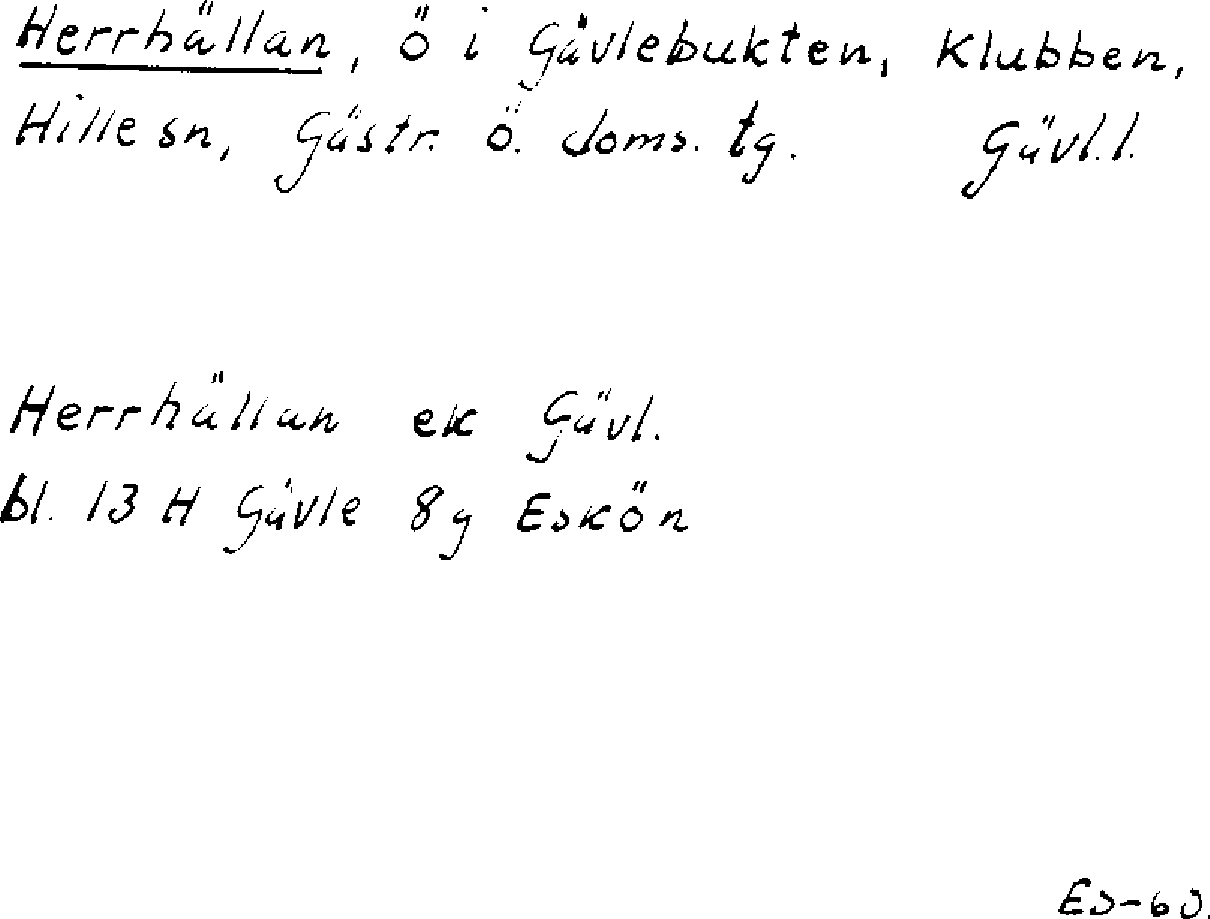 Herrhällan, ö i Gävlebukten, Klubben,
Hille sn, Gästr. ö. doms. tg. Gävl.l.
Herrhällan ek Gävl.
bl. 13 H Gävle 8g Eskön